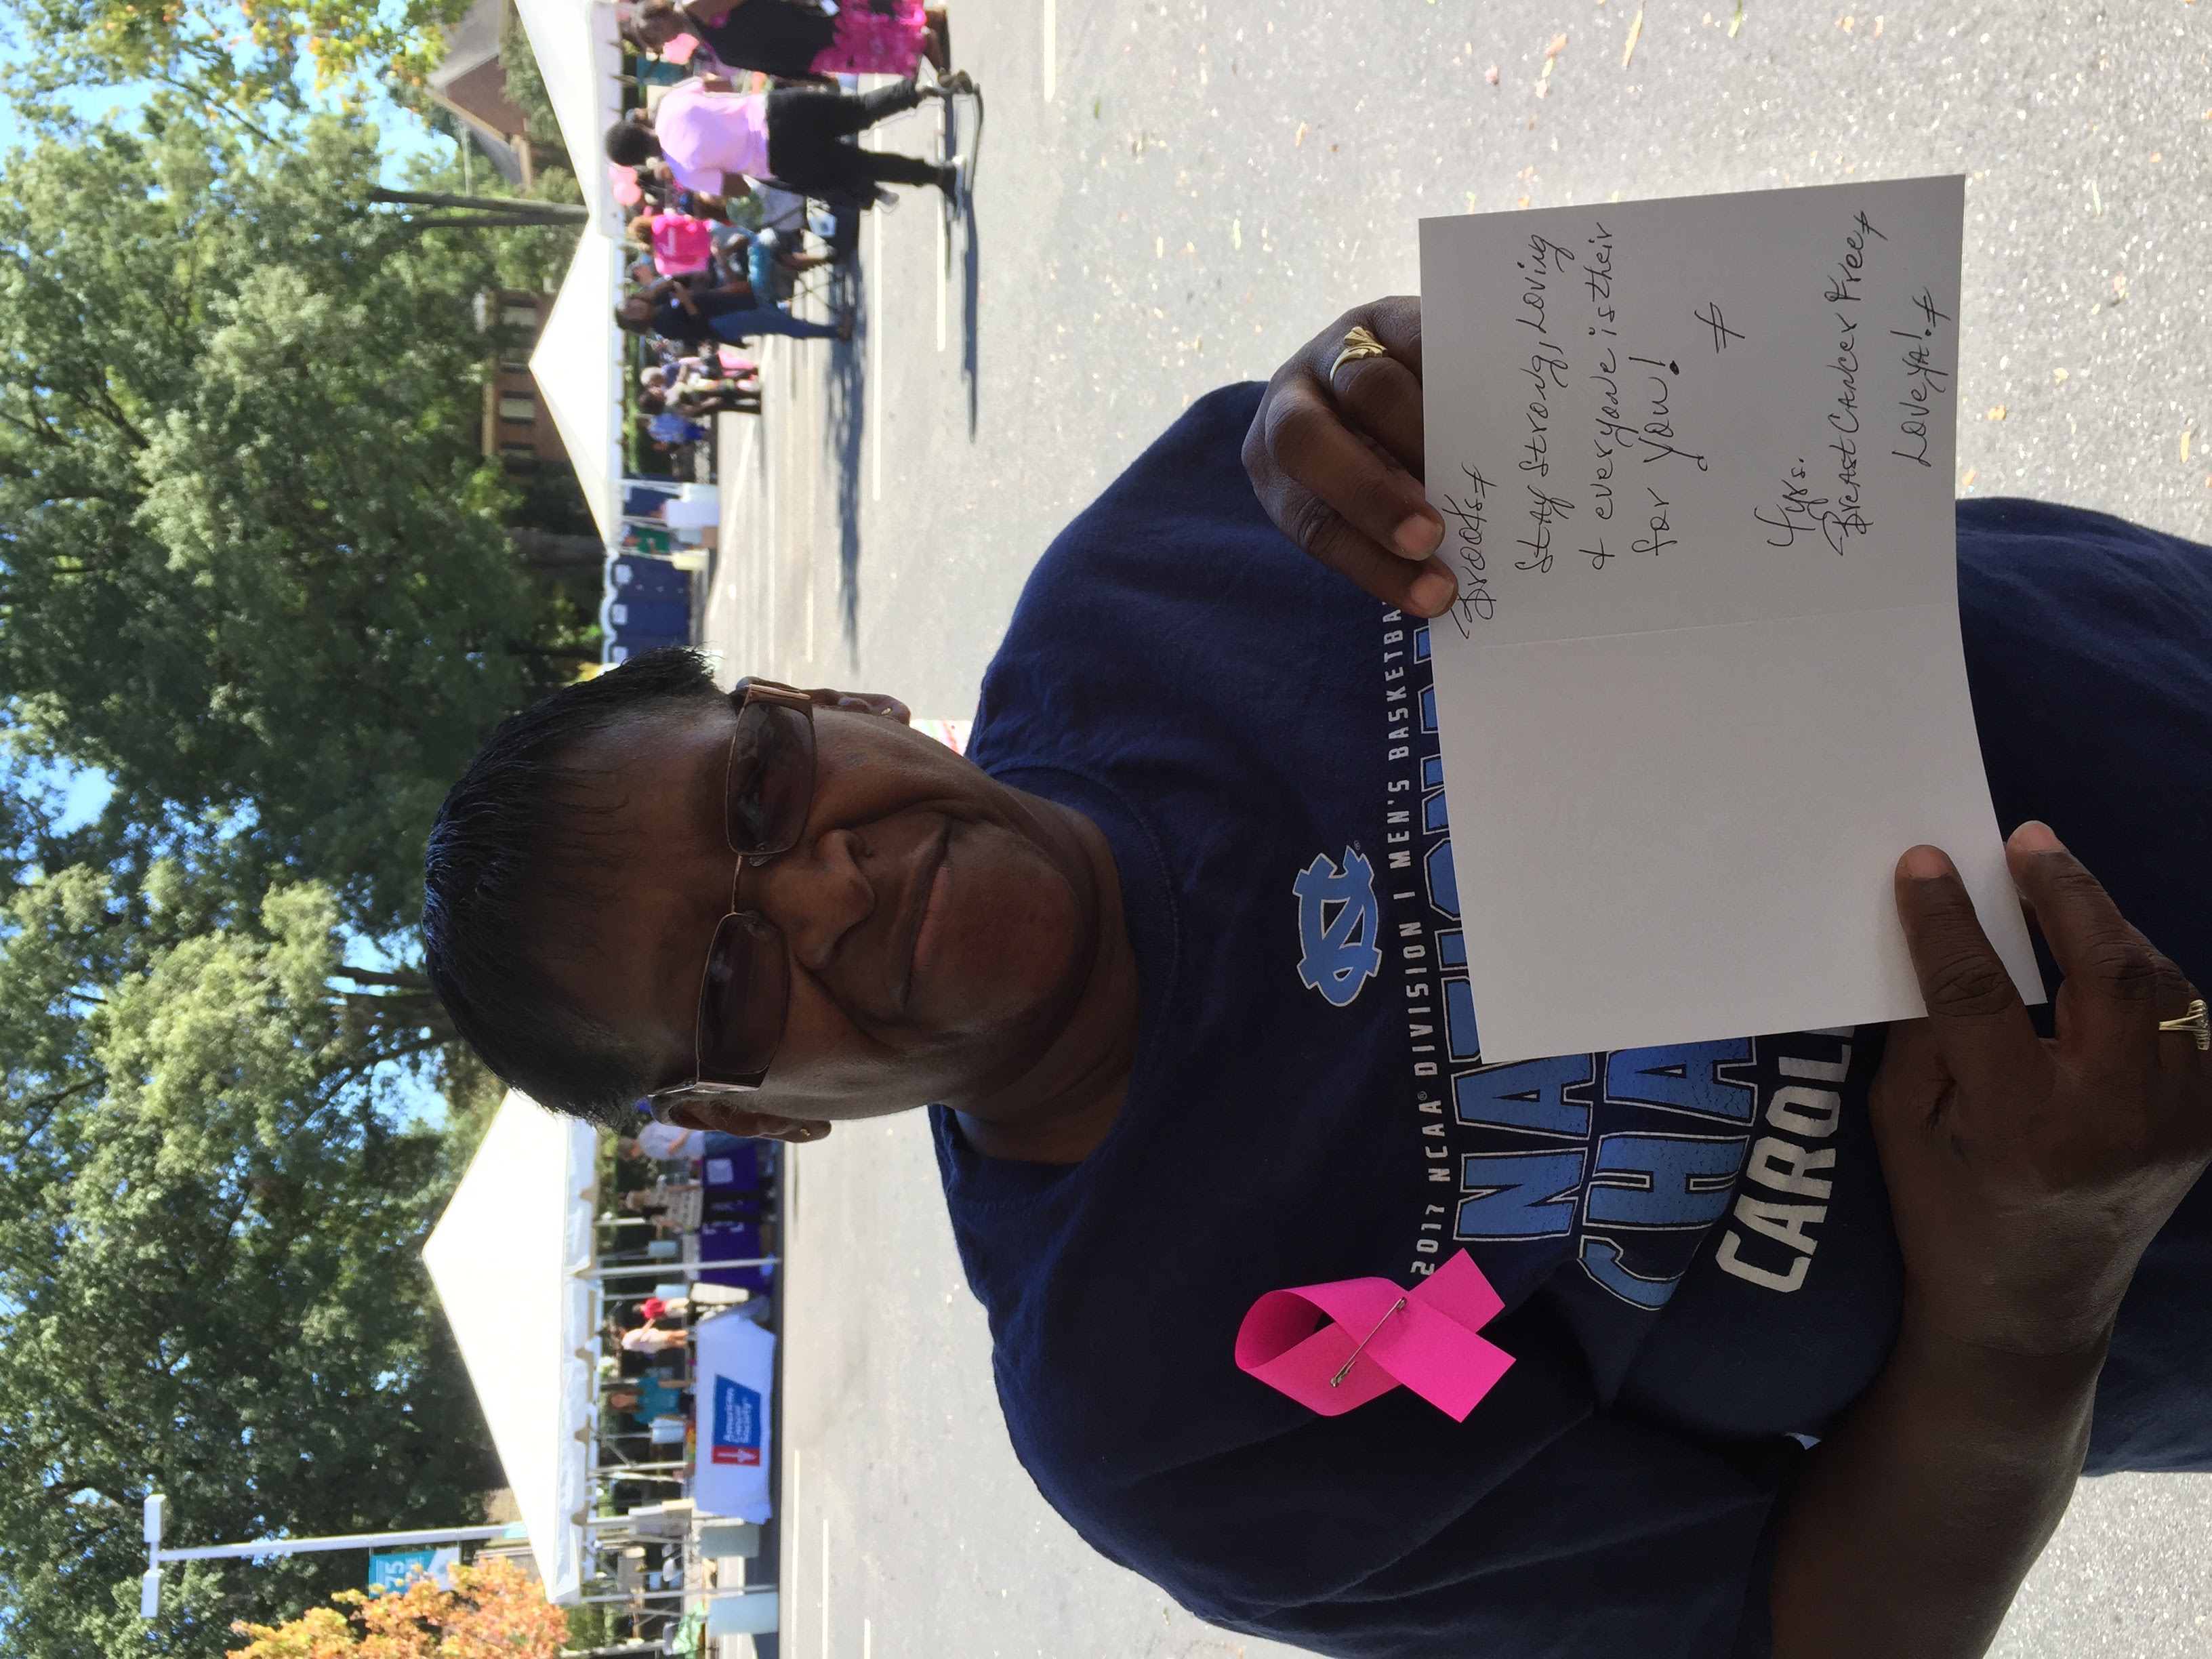 75
American
Cancer
Society
NC
2017 NCAA® DIVISION I MEN'S BASKETBA
NATIONAL
CHA
CAROL
Brooks,
Stay Strong, Loving
& everyone is their
for you!
4yrs.
Breast Cancer Free,
Love ya!